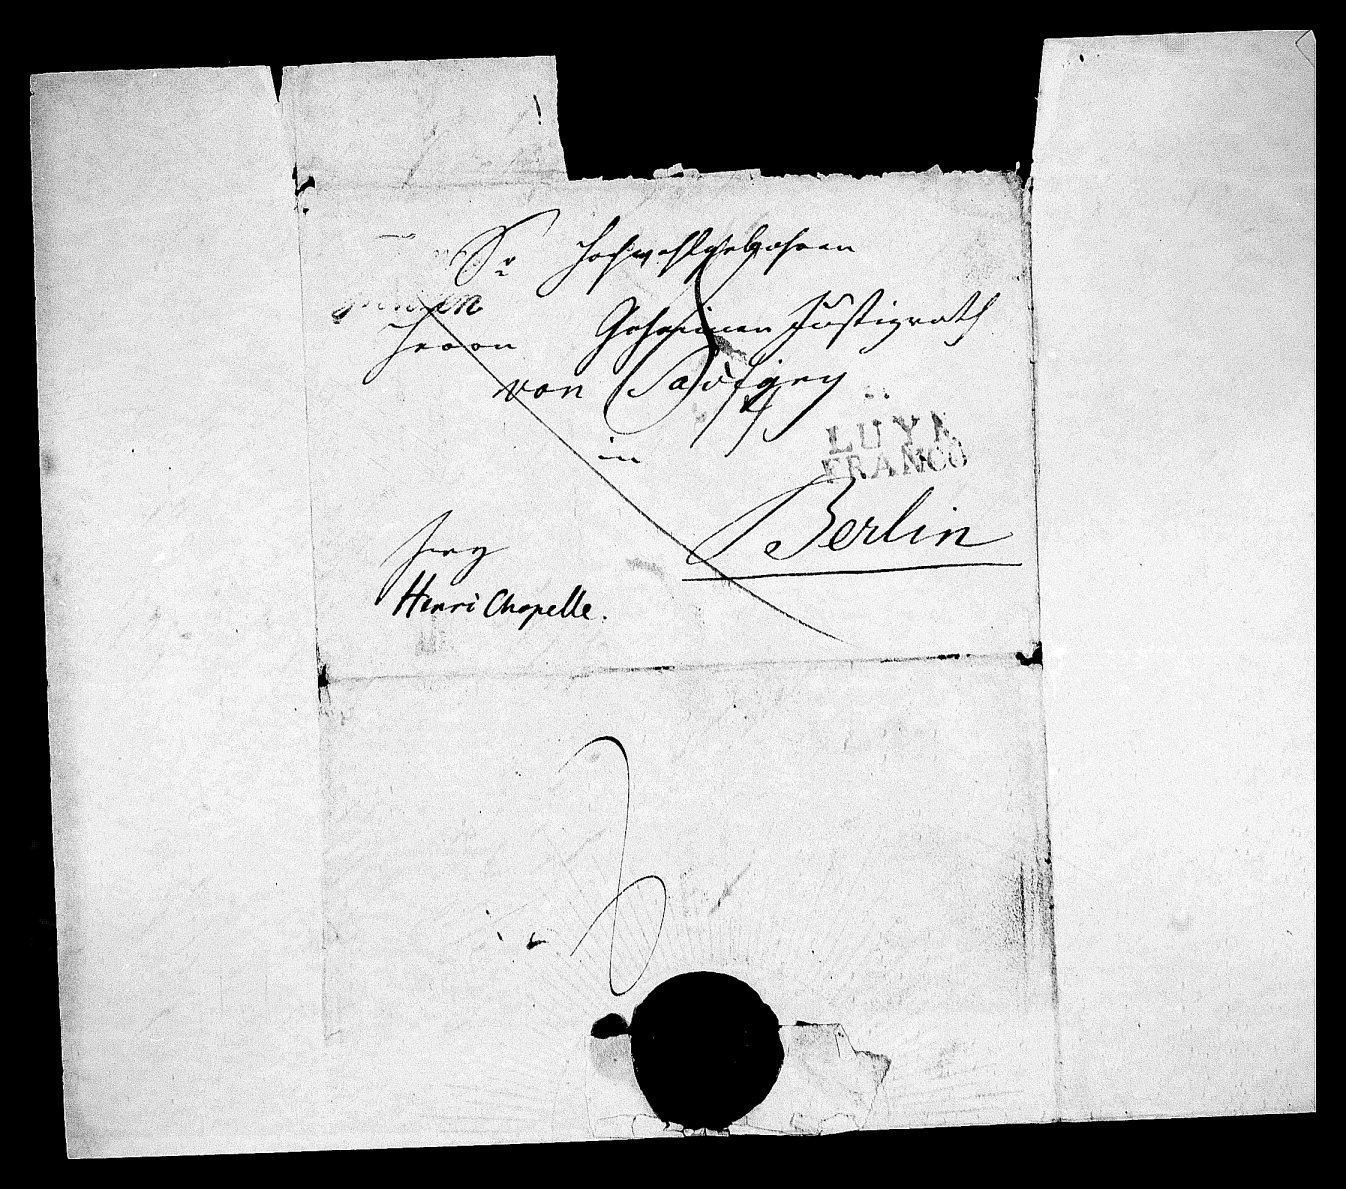 Sr Hochwohlgebohren
Herrn Geheimen Justizrath
von Savigny
in
LUYK
FRANCO
Berlin
Henri Chapelle.